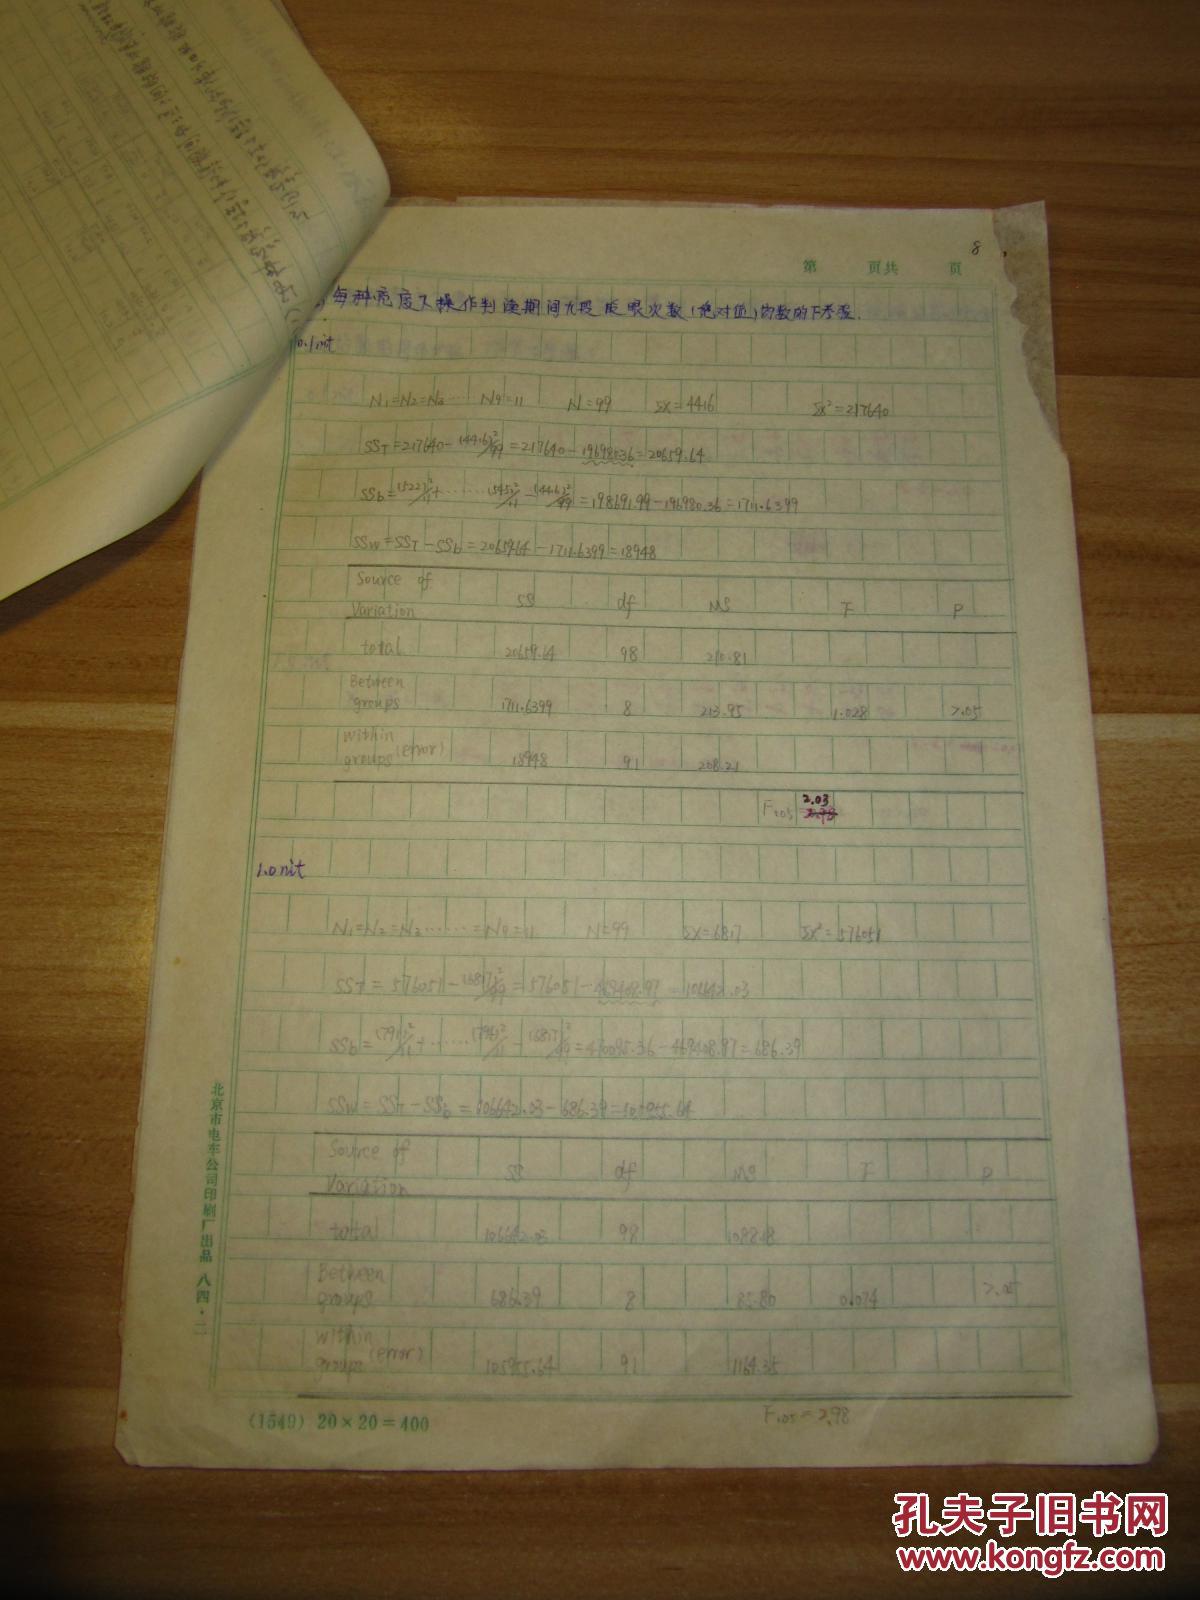 8
第 页共 页
每种亮度下操作判读期间九段眨眼次数(绝对值)均数的F考验.
0.1nit
N₁=N₂=N₃……N₉=11 N=99 ΣX=4416 ΣX²=217640
SST=217640-(4416)²/99=217640-196980.36=20659.64
SSb=(522)²/11+……(545)²/11-(4416)²/99=198691.99-196980.36=1711.6399
SSw=SST-SSb=20659.64-1711.6399=18948
Source of Variation SS df MS F P
total 20659.64 98 210.81
Between groups 1711.6399 8 213.95 1.028 >.05
within groups (error) 18948 91 208.21
F.05=2.03
1.0nit
N₁=N₂=N₃……=N₉=11 N=99 ΣX=6817 ΣX²=576051
SST=576051-(6817)²/99=576051-469408.97=106642.03
SSb=(791)²/11+……(796)²/11-(6817)²/99=470095.36-469408.97=686.39
SSW=SST-SSb=106642.03-686.39=105955.64
Source of Variation SS df MS F P
total 106642.03 98 1088.18
Between groups 686.39 8 85.80 0.074 >.05
within groups (error) 105955.64 91 1164.35
F.05=2.98
(1549) 20×20=400
北京市电车公司印刷厂出品 八四·二
孔夫子旧书网
www.kongfz.com